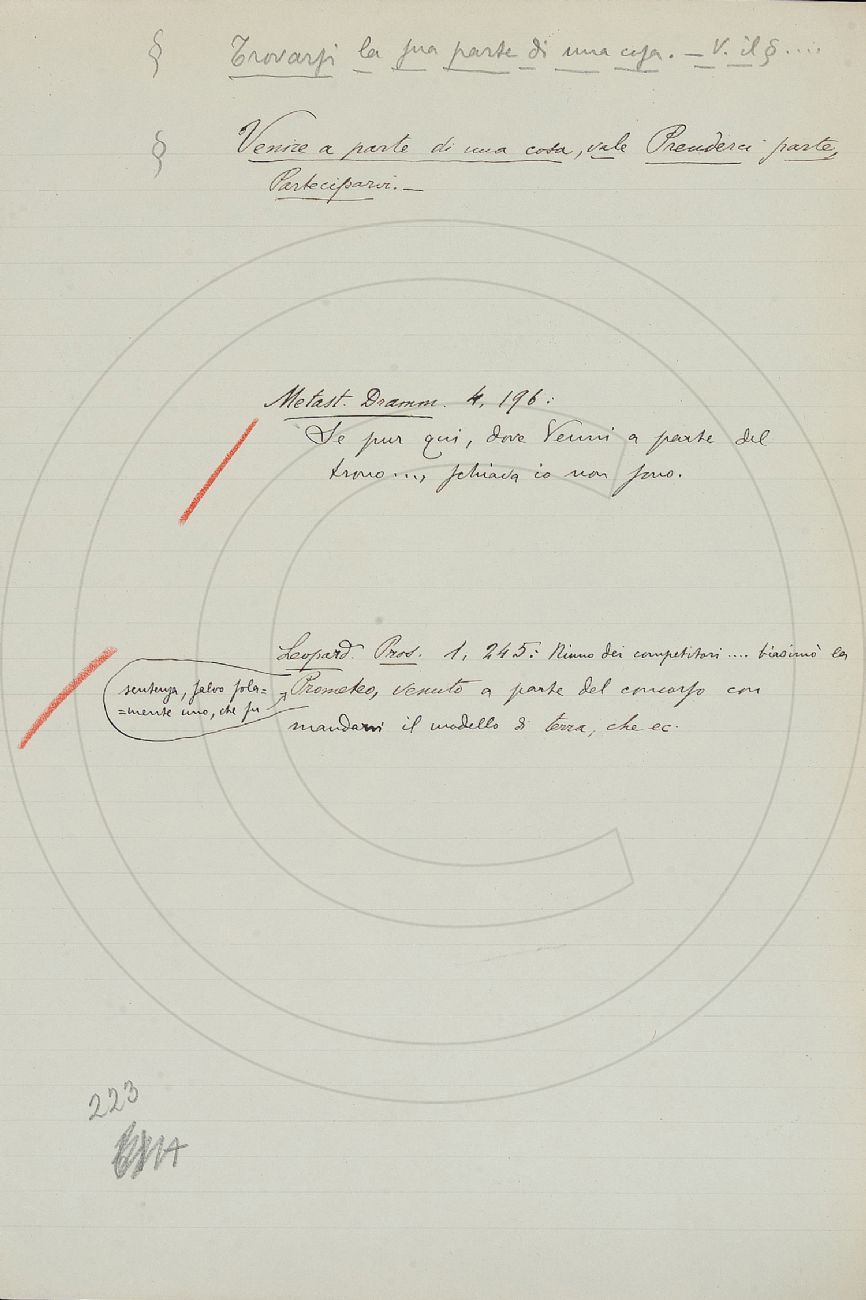 § Trovarsi la sua parte di una cosa. — V. il § ....
§ Venire a parte di una cosa, vale Prenderci parte,
Parteciparvi. —
Metast. Dramm. 4, 196:
Se pur qui, dove Venni a parte del
trono..., schiava io non sono.
Leopard. Pros. 1, 245: Niuno dei competitori .... biasimò la
sentenza, salvo sola=
=mente uno, che fu
Prometeo, venuto a parte del concorso con
mandarvi il modello di terra, che ec.
223